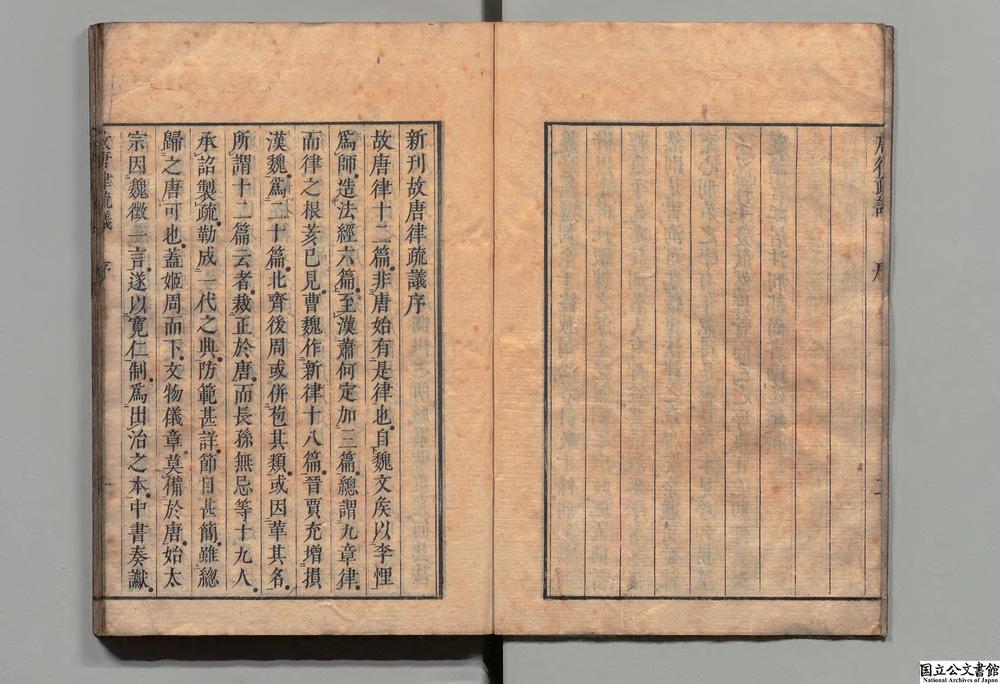 唐律疏議
序
二
新刊故唐律疏議序
故唐律十二篇非唐始有是律也自魏文矦以李悝
爲師造法經六篇至漢蕭何定加三篇總謂九章律
而律之根荄已見曹魏作新律十八篇晉賈充增損
漢魏爲二十篇北齊後周或併苞其類或因革其名
所謂十二篇云者裁正於唐而長孫無忌等十九人
承詔製疏勒成一代之典防範甚詳節目甚簡雖總
歸之唐可也蓋姬周而下文物儀章莫備於唐始太
宗因魏徵一言遂以寛仁制爲出治之本中書奏讞
故唐律疏議
序
一
国立公文書館
National Archives of Japan